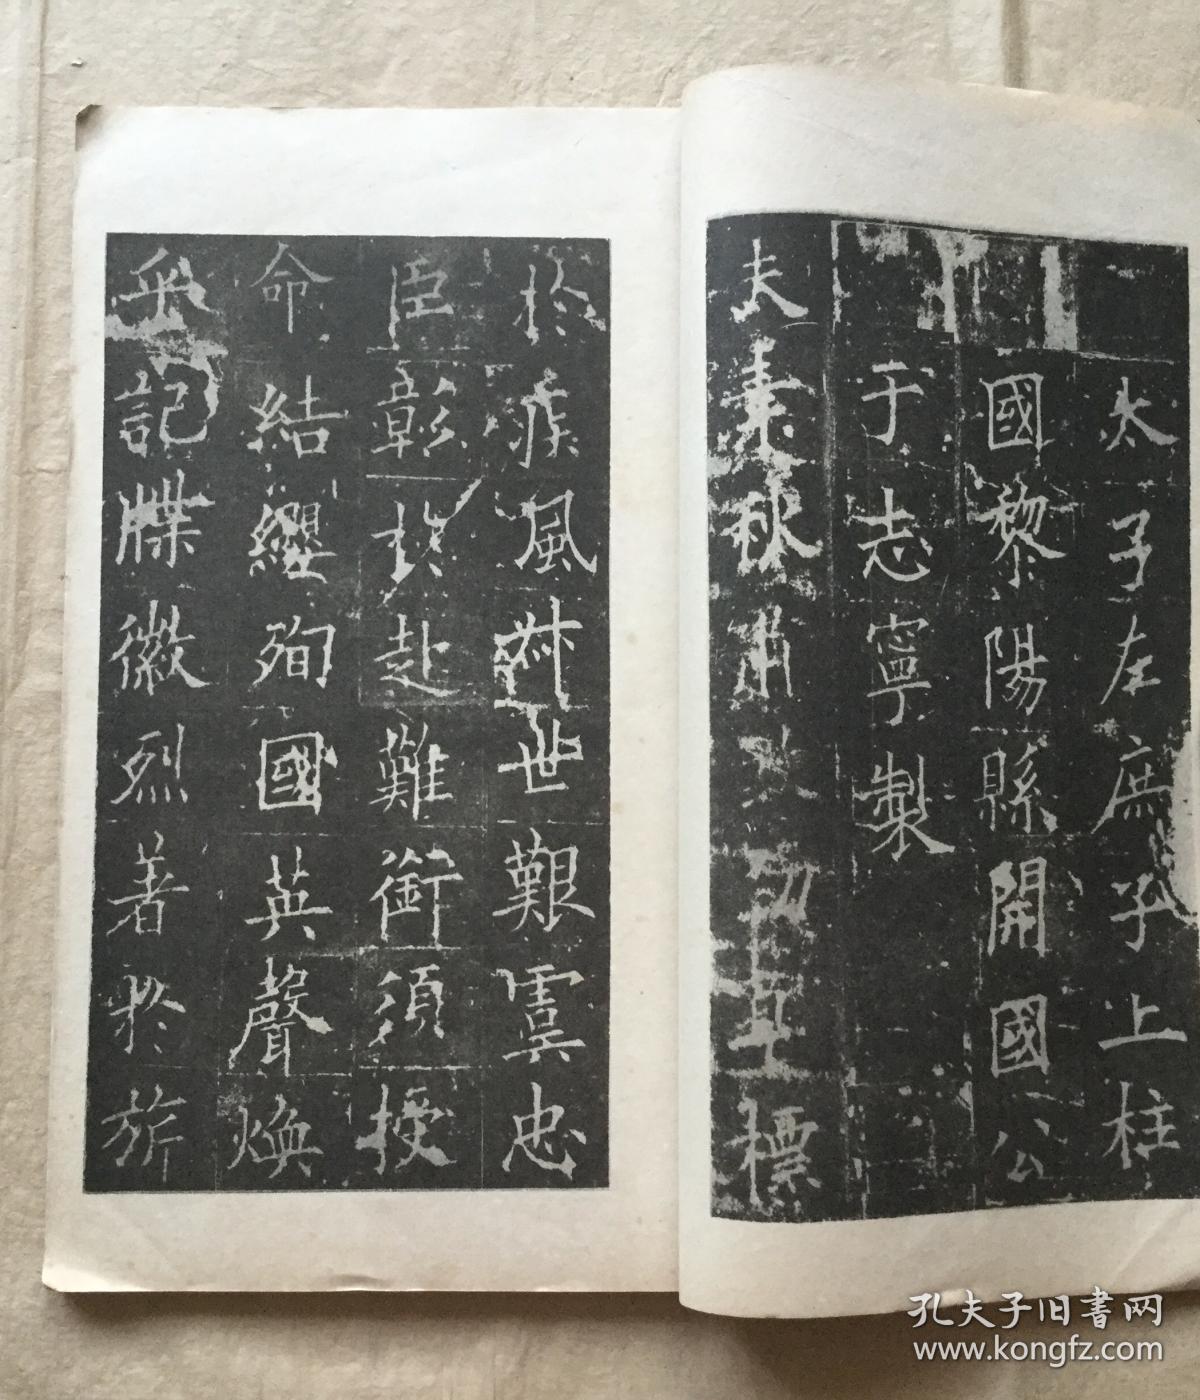 太子左庶子上柱
國黎陽縣開國公
于志寧製
夫素秋肅勁草標
於疾風叔世艱虞忠
臣彰於赴難銜須授
命結纓殉國英聲煥
乎記牒徽烈著於旂
孔夫子旧书网
www.kongfz.com